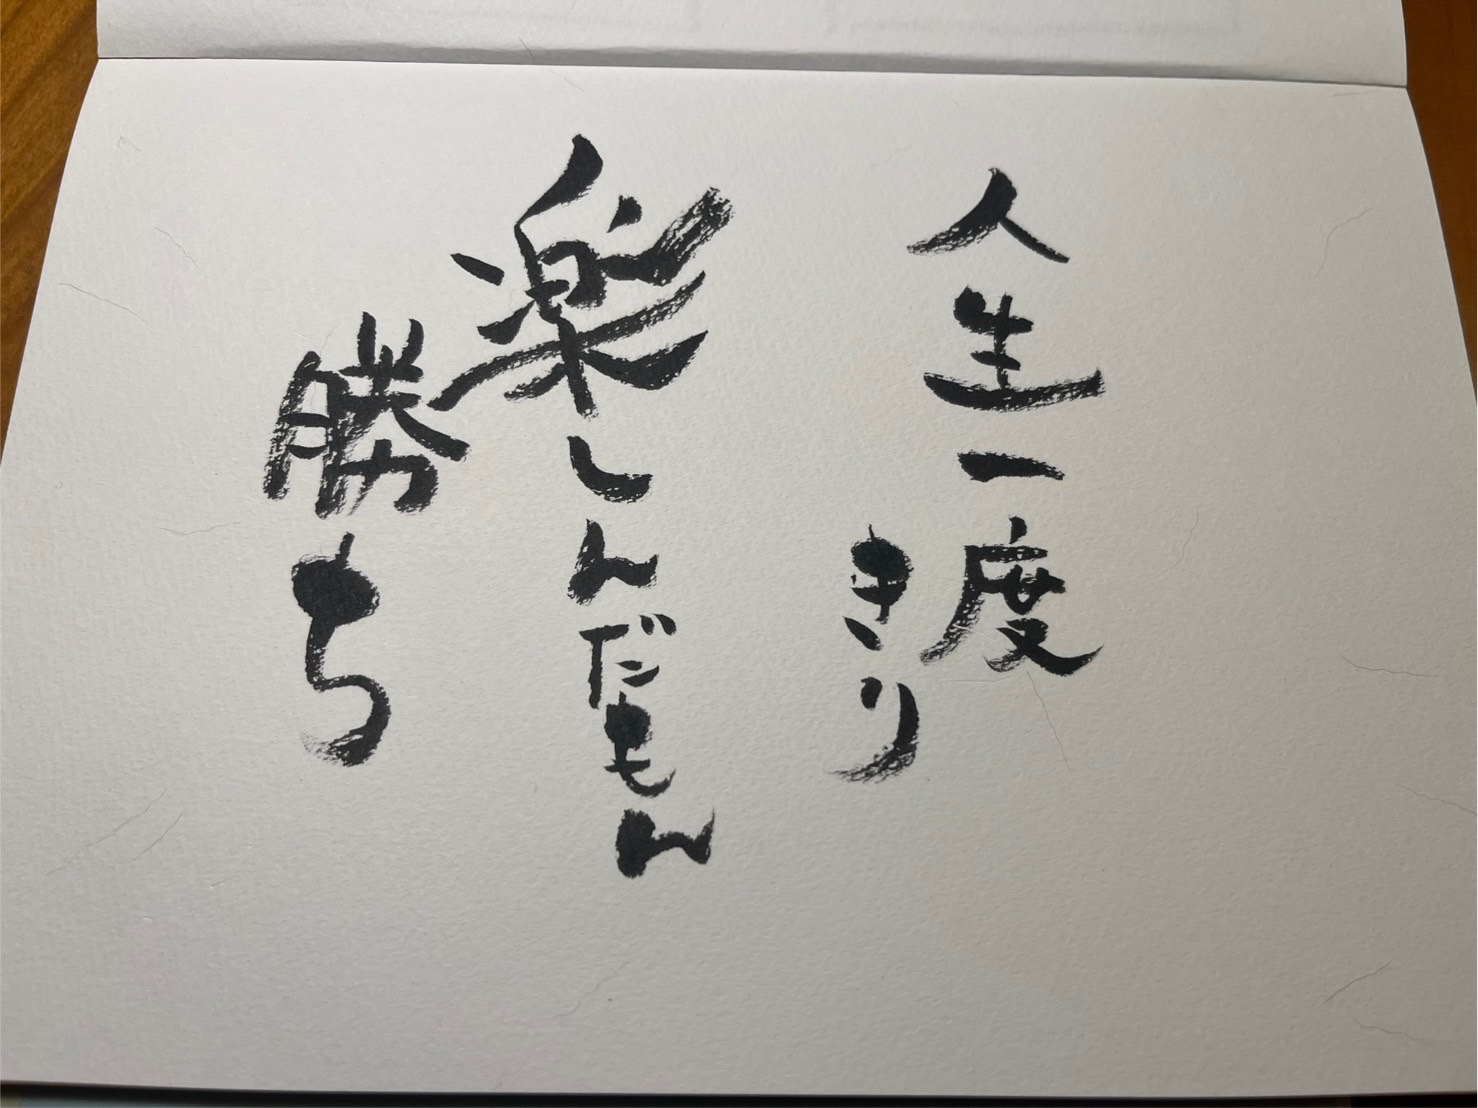 人生一度
きり
楽しんだもん
勝ち